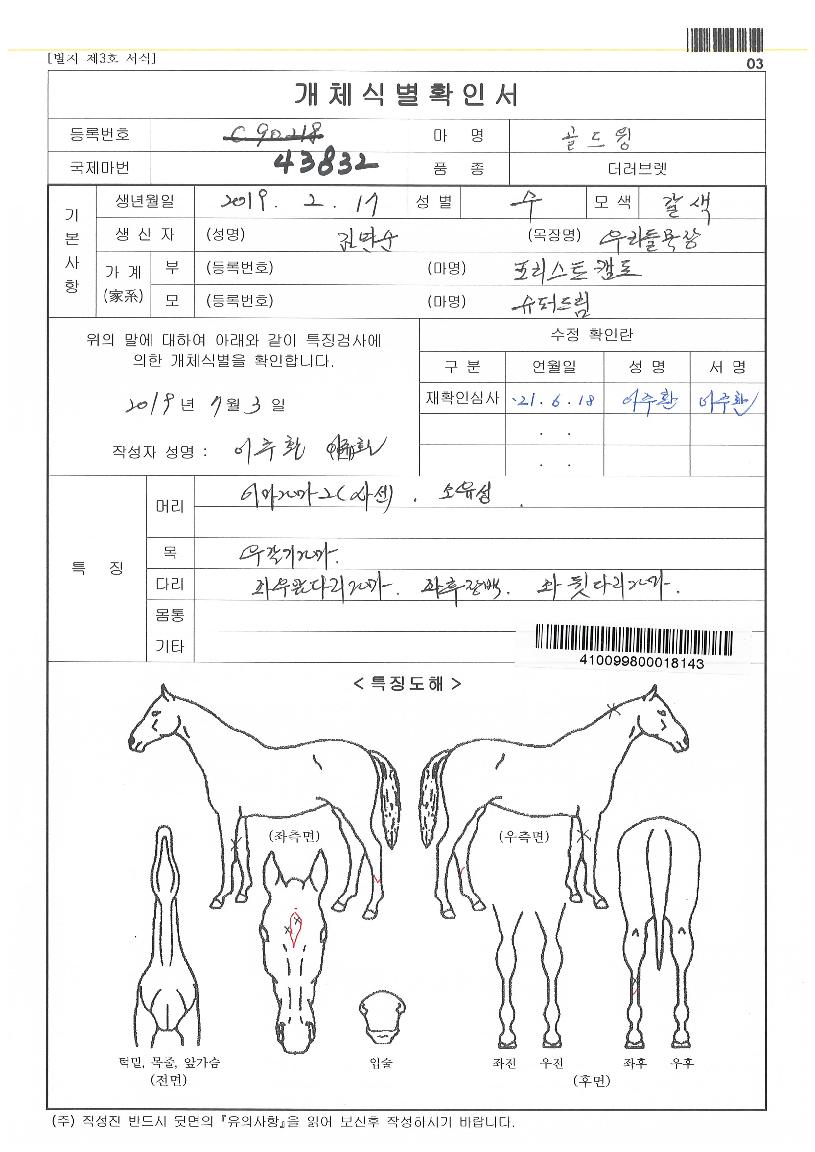 [별지 제3호 서식]
03
개체식별확인서
등록번호 C90218 마 명 골드윙
국제마번 43832 품 종 더러브렛
기본사항
생년월일 2019. 2. 17 성 별 수 모 색 갈색
생 신 자 (성명) 김만순 (목장명) 우리들목장
가 계 (家系) 부 (등록번호) (마명) 포리스트캠프
모 (등록번호) (마명) 슈퍼드림
위의 말에 대하여 아래와 같이 특징검사에
의한 개체식별을 확인합니다.
2019 년 7 월 3 일
작성자 성명 : 이주환
수정 확인란
구 분 연월일 성 명 서 명
재확인심사 '21. 6. 18 이주환 이주환
. .
. .
특 징
머리 이마가마2(사선). 소유성
목 우갈기가마.
다리 좌우앞다리가마. 좌후장백. 좌뒷다리가마.
몸통
기타
410099800018143
< 특징도해 >
(좌측면) (우측면)
턱밑, 목줄, 앞가슴 입술 좌진 우진 좌후 우후
(전면) (후면)
(주) 작성진 반드시 뒷면의 『유의사항』을 읽어 보신후 작성하시기 바랍니다.